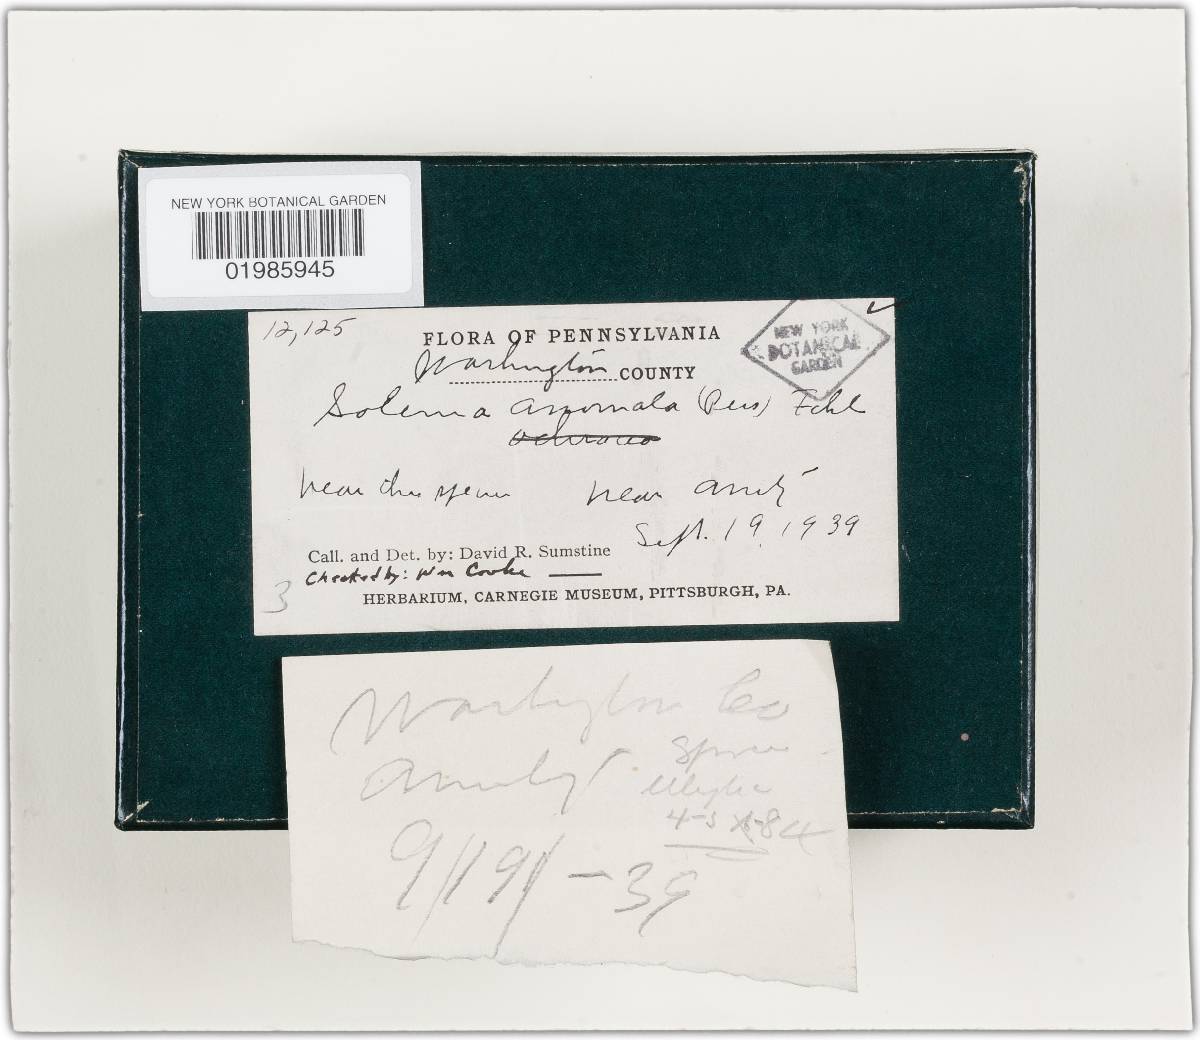 NEW YORK BOTANICAL GARDEN
01985945
12,125
FLORA OF PENNSYLVANIA
NEW YORK
BOTANICAL
GARDEN
Washington COUNTY
Solenia anomala (Pers) Fckl
ochracea
near
near Amity
Sept. 19, 1939
Call. and Det. by: David R. Sumstine
Checked by: Wm Cooke
3
HERBARIUM, CARNEGIE MUSEUM, PITTSBURGH, PA.
Washington Co
Amity
Spores
4-5 x 6-8 4
9/19/-39